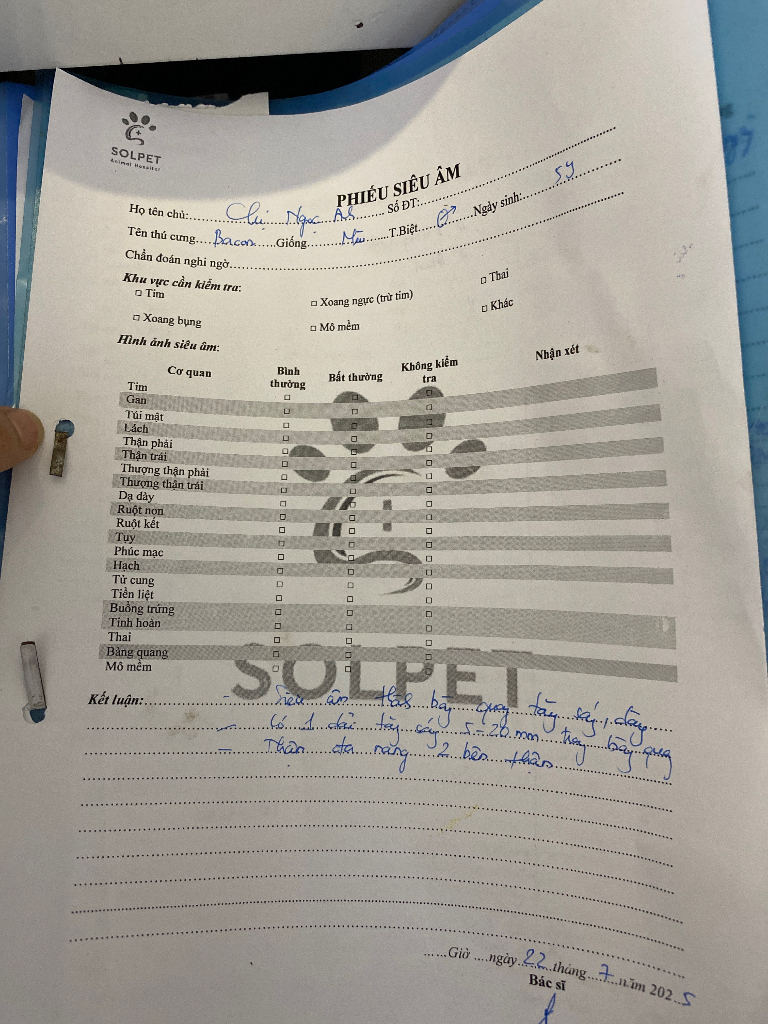 SOLPET
Animal Hospital
PHIẾU SIÊU ÂM
Họ tên chủ: Chị Ngọc Số ĐT:
Tên thú cưng Bacon Giống T.Biệt ♂ Ngày sinh: 5y
Chẩn đoán nghi ngờ
Khu vực cần kiểm tra:
□ Tim □ Xoang ngực (trừ tim) □ Thai
□ Xoang bụng □ Mô mềm □ Khác
Hình ảnh siêu âm:
Cơ quan Bình thường Bất thường Không kiểm tra Nhận xét
Tim □ □ □
Gan □ □ □
Túi mật □ □ □
Lách □ □ □
Thận phải □ □ □
Thận trái □ □ □
Thượng thận phải □ □ □
Thượng thận trái □ □ □
Dạ dày □ □ □
Ruột non □ □ □
Ruột kết □ □ □
Tụy □ □ □
Phúc mạc □ □ □
Hạch □ □ □
Tử cung □ □ □
Tiền liệt □ □ □
Buồng trứng □ □ □
Tinh hoàn □ □ □
Thai □ □ □
Bàng quang □ □ □
Mô mềm □ □ □
SOLPET
Kết luận: - Siêu âm bàng quang tăng sáng, dày
- Có 1 tăng sáng 5-20 mm trong bàng quang
- Thận đa nang 2 bên thận
Giờ ngày 22 tháng 7 năm 2025
Bác sĩ